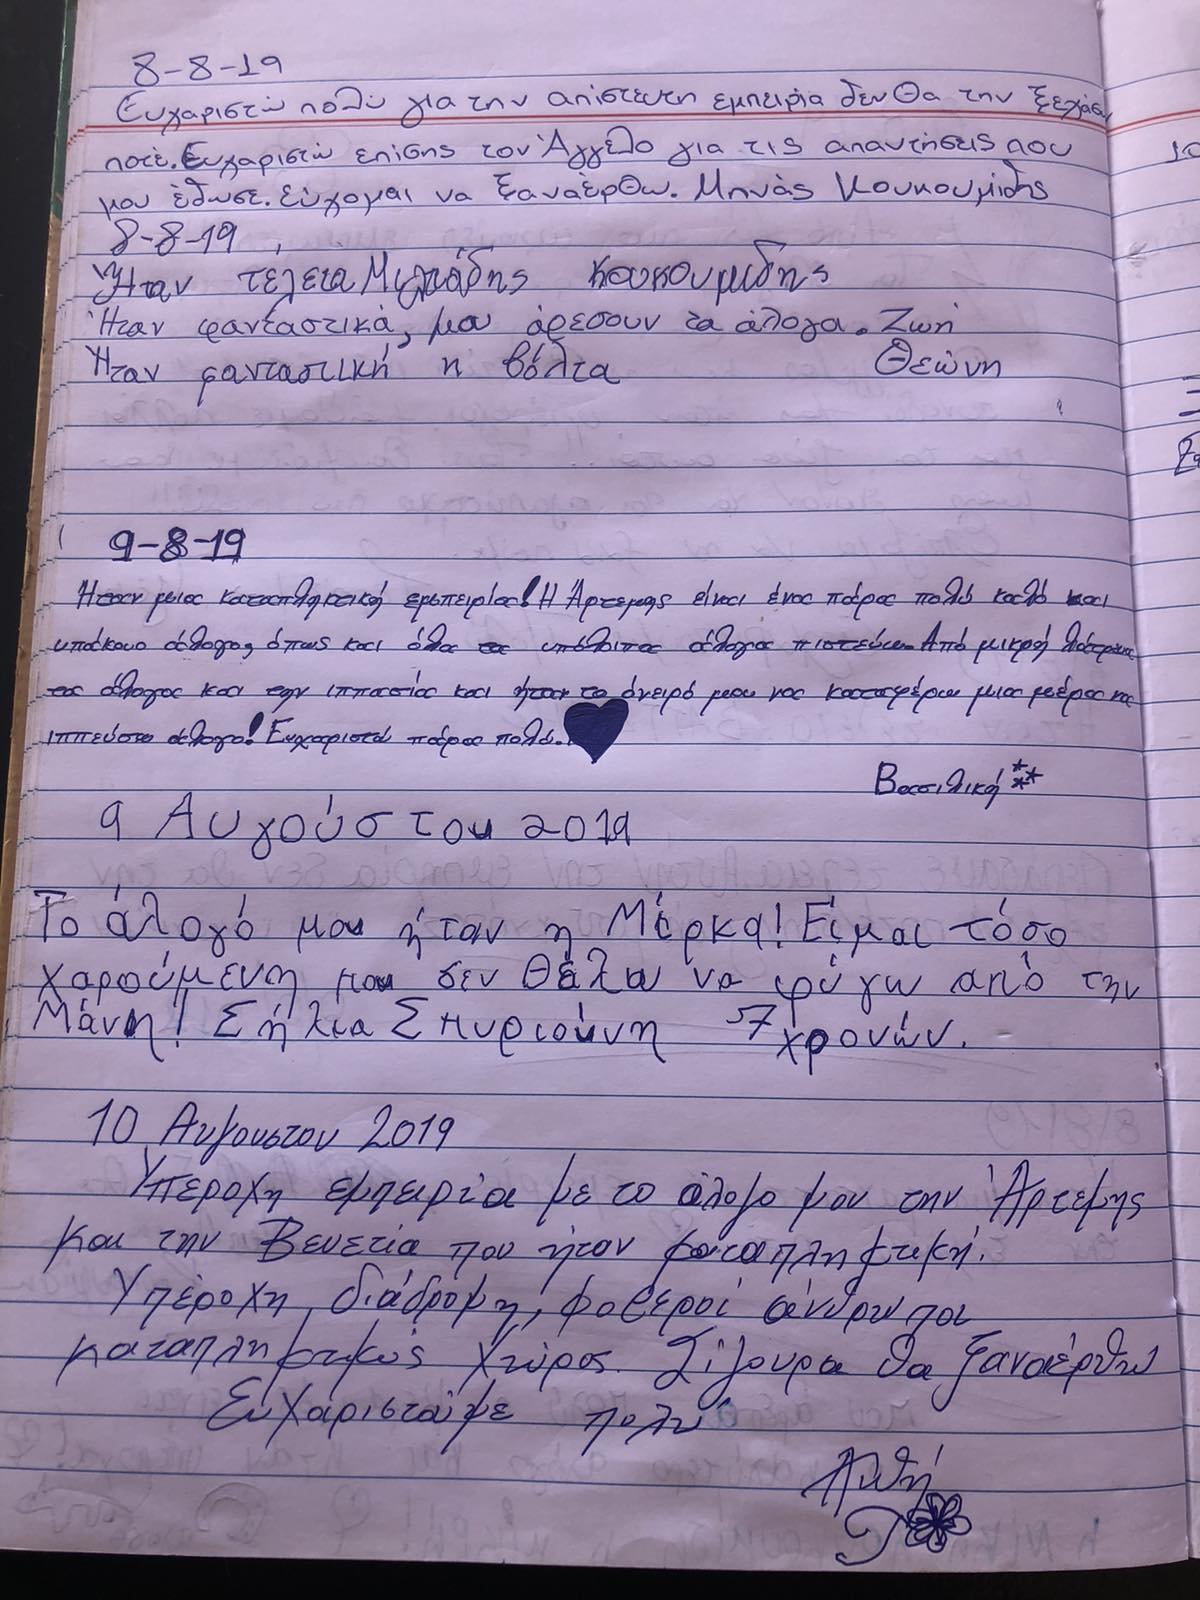 8-8-19
Ευχαριστώ πολύ για την απίστευτη εμπειρία δεν θα την ξεχάσω
ποτέ. Ευχαριστώ επίσης τον Άγγελο για τις απαντήσεις που
μου έδωσε. εύχομαι να ξαναέρθω. Μηνάς Κουκουμίδης
8-8-19
Ήταν τέλεια Μιλτιάδης Κουκουμιδης
Ήταν φανταστικά, μου αρέσουν τα άλογα. Ζωή
Ήταν φανταστική η βόλτα Θεώνη
9-8-19
Ήταν μια καταπληκτική εμπειρία! Η Άρτεμης είναι ένα πάρα πολύ καλό και
υπάκουο άλογο, όπως και όλα τα υπόλοιπα άλογα πιστεύω. Από μικρή λάτρευα
τα άλογα και την ιππασία και ήταν το όνειρό μου να καταφέρω μια μέρα να
ιππεύσω άλογο! Ευχαριστώ πάρα πολύ.
Βασιλική
9 Αυγούστου 2019
Το άλογό μου ήταν η Μέρκα! Είμαι τόσο
χαρούμενη που δεν θέλω να φύγω από την
Μάνη! Σήλια Σπυριούνη 7
χρονών.
10 Αυγουστου 2019
Υπεροχη εμπειρία με το άλογο μου την Άρτεμης
και την Βενετία που ήταν καταπληκτική.
Υπέροχη διάδρομη, φοβεροί άνθρωποι
καταπληκτικός χώρος. Σίγουρα θα ξαναέρθω
Ευχαριστούμε πολύ
Ανθή